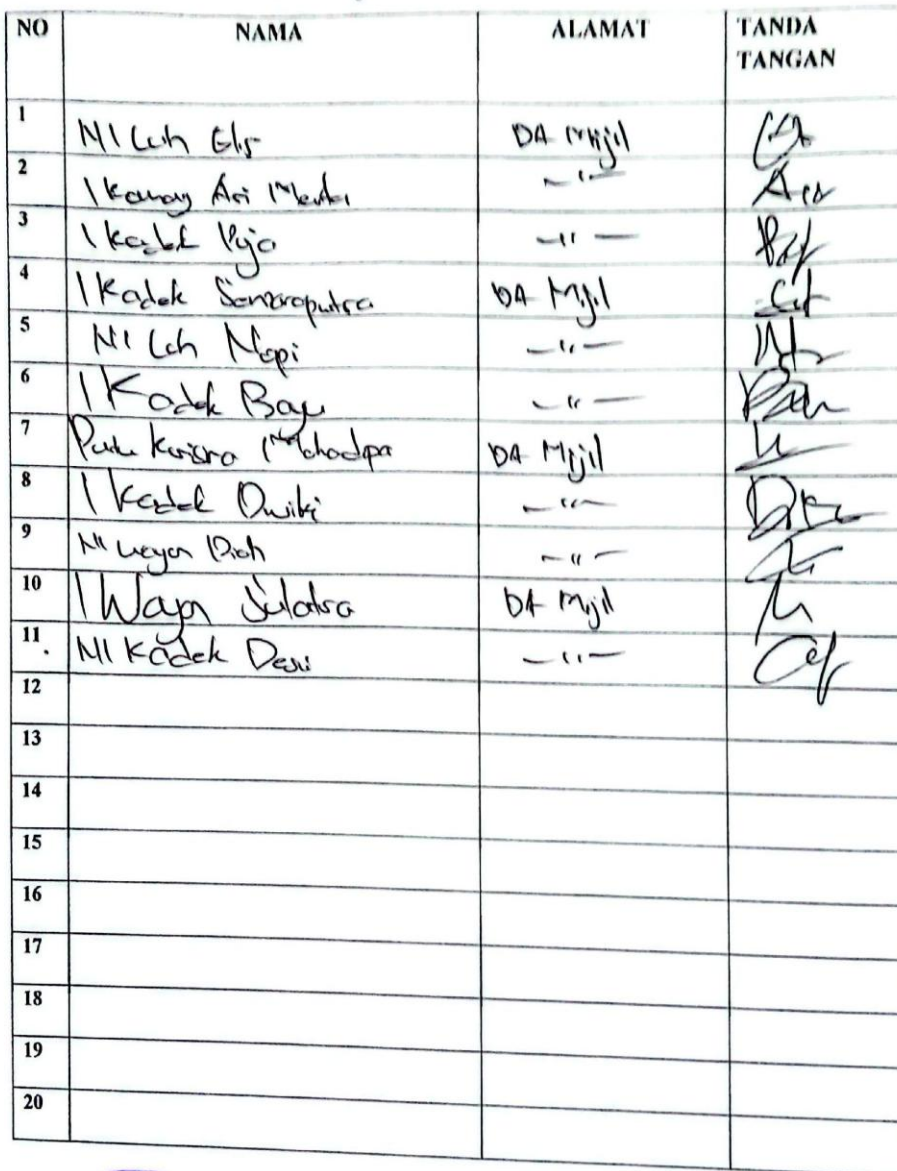 NO NAMA ALAMAT TANDA TANGAN
1 NI Luh Elis DA Mijil
2 I Komang Ari Merta -"-
3 I Kadek Puja -"-
4 I Kadek Semaraputra DA Mijil
5 NI Luh Nopi -"-
6 I Kadek Bayu -"-
7 Putu Krisna DA Mijil
8 I Kadek Dwiki -"-
9 NI Wayan Diah -"-
10 I Wayan Sulatra DA Mijil
11 NI Kadek Desi -"-
12
13
14
15
16
17
18
19
20